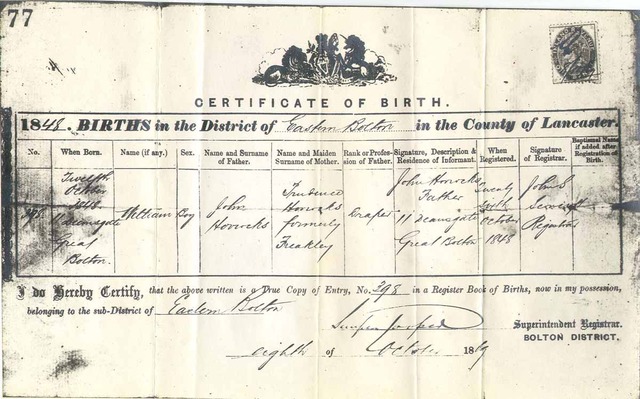 77
CERTIFICATE OF BIRTH.
1848. BIRTHS in the District of Eastern Bolton in the County of Lancaster.
No. When Born. Name (if any). Sex. Name and Surname of Father. Name and Maiden Surname of Mother. Rank or Profession of Father. Signature, Description & Residence of Informant. When Registered. Signature of Registrar. Baptismal Name if added after Registration of Birth.
398
Twelfth
October
1848
11 Deansgate
Great
Bolton.
William
Boy
John
Horrocks
Prudence
Horrocks
formerly
Freakley
Draper
John Horrocks
Father
11 Deansgate
Great Bolton
October
1848
John S
Registrar
I do Hereby Certify, that the above written is a True Copy of Entry, No. 398 in a Register Book of Births, now in my possession,
belonging to the sub-District of Eastern Bolton
Superintendent Registrar.
BOLTON DISTRICT.
eighth of October 1869